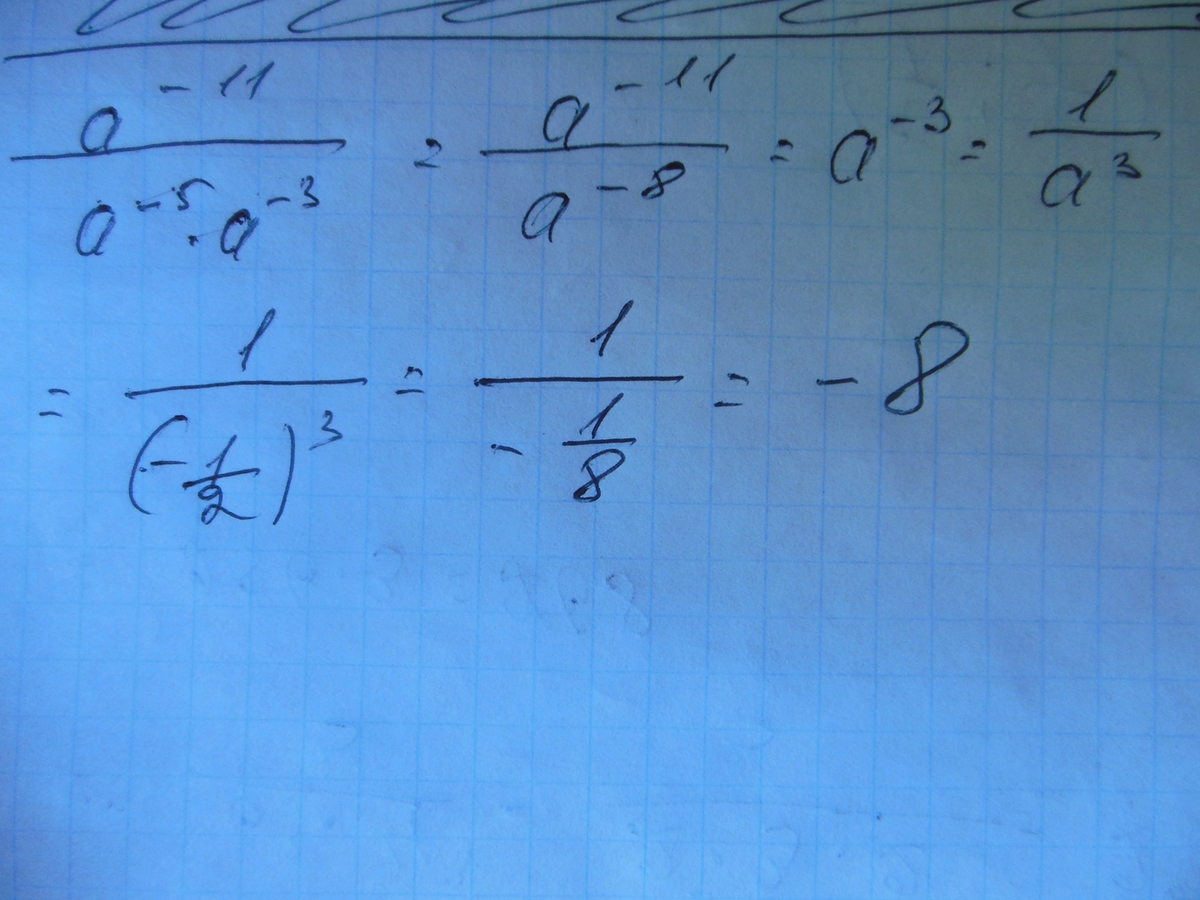 a^{-11} / (a^{-5} · a^{-3}) = a^{-11} / a^{-8} = a^{-3} = 1 / a^3
= 1 / (-1/2)^3 = 1 / (-1/8) = -8